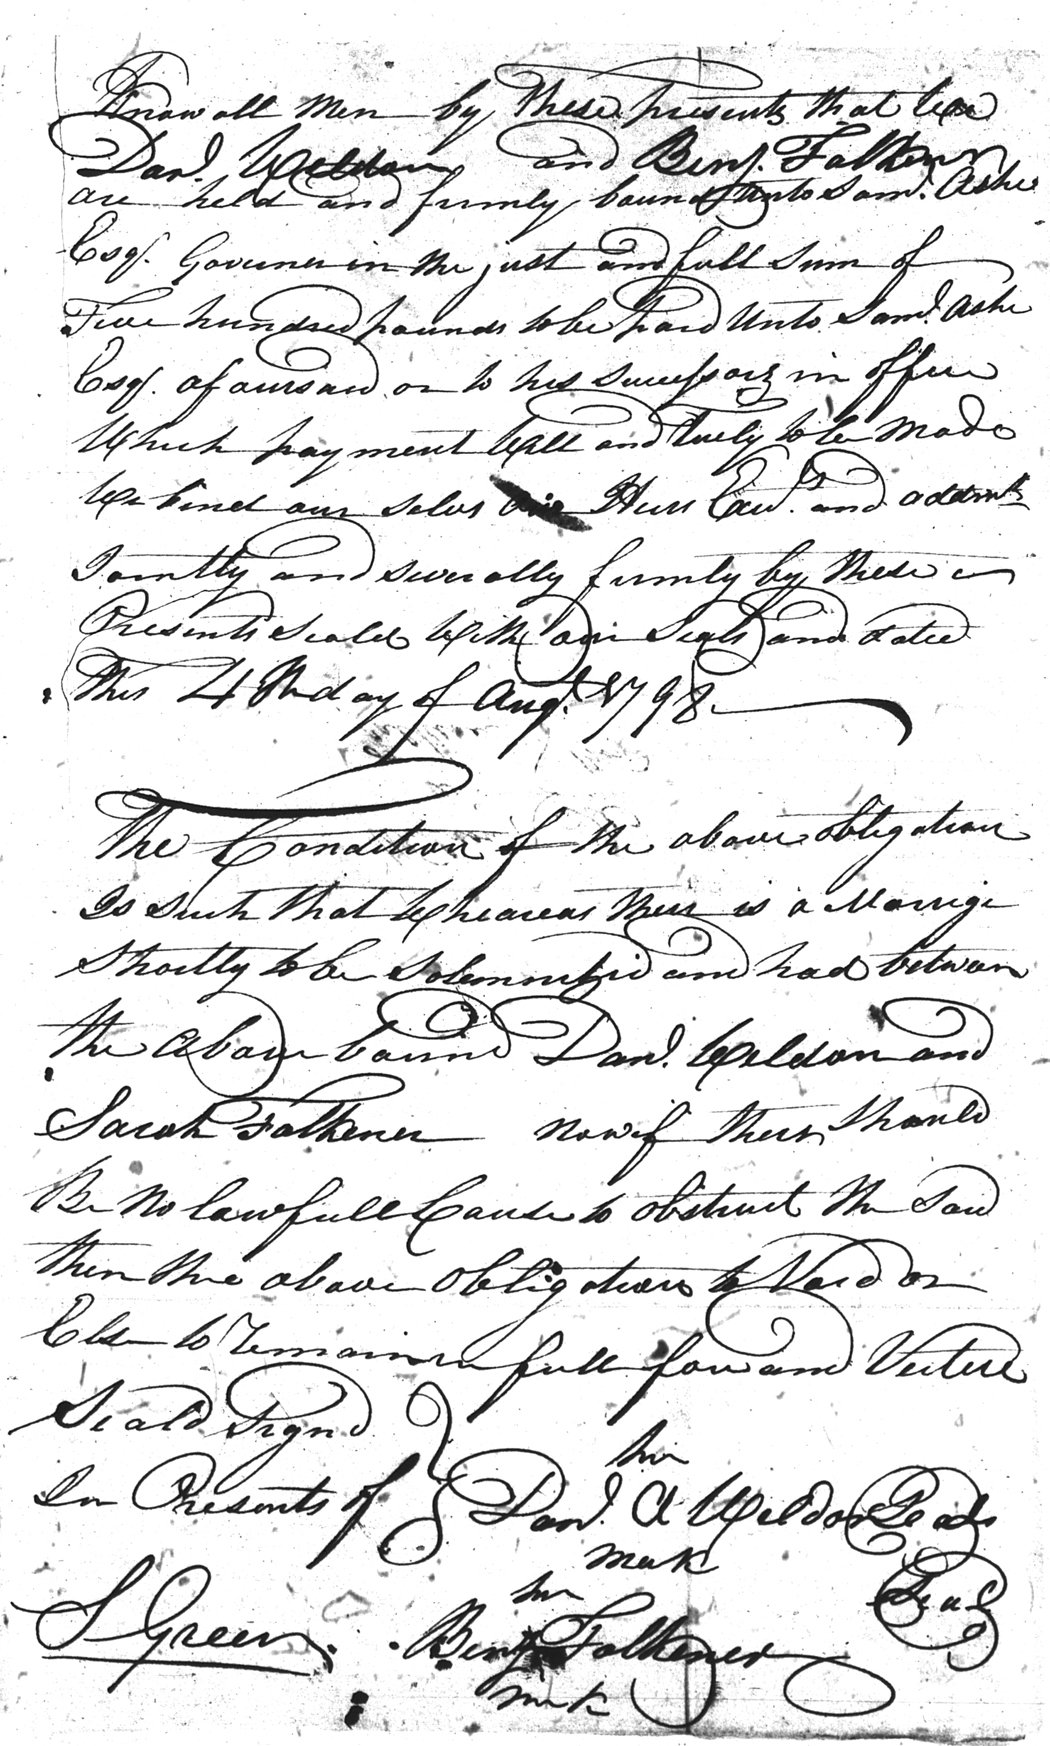 Know all Men by these presents that We
Danl. Weldon and Benj. Falkener
are held and firmly bound unto Saml. Ashe
Esqr. Governer in the just and full Sum of
Five hundred pounds to be paid Unto Saml. Ashe
Esqr. afoursaid or to his Successors in office
Which payment Well and Truely to be Made
We bind our selves our Heirs Exrs. and admrs
Jointly and severally firmly by these
Presents Seald With our Seals and Dated
This 4th day of Augt. 1798
The Condition of the above obligation
Is Such that Wheareas their is a Marrige
Shortly to be Solemnized and had between
the above bound Danl. Weldon and
Sarah Falkener Now if their Should
Be No lawfull Cause to obstruct the Said
then the above obligation to Void or
Else to remain in full force and Vertue
Seald Signd
In Presents of
his
Danl. X Weldon Seal
mark
S Green
his
Benj. Falkener Seal
mark